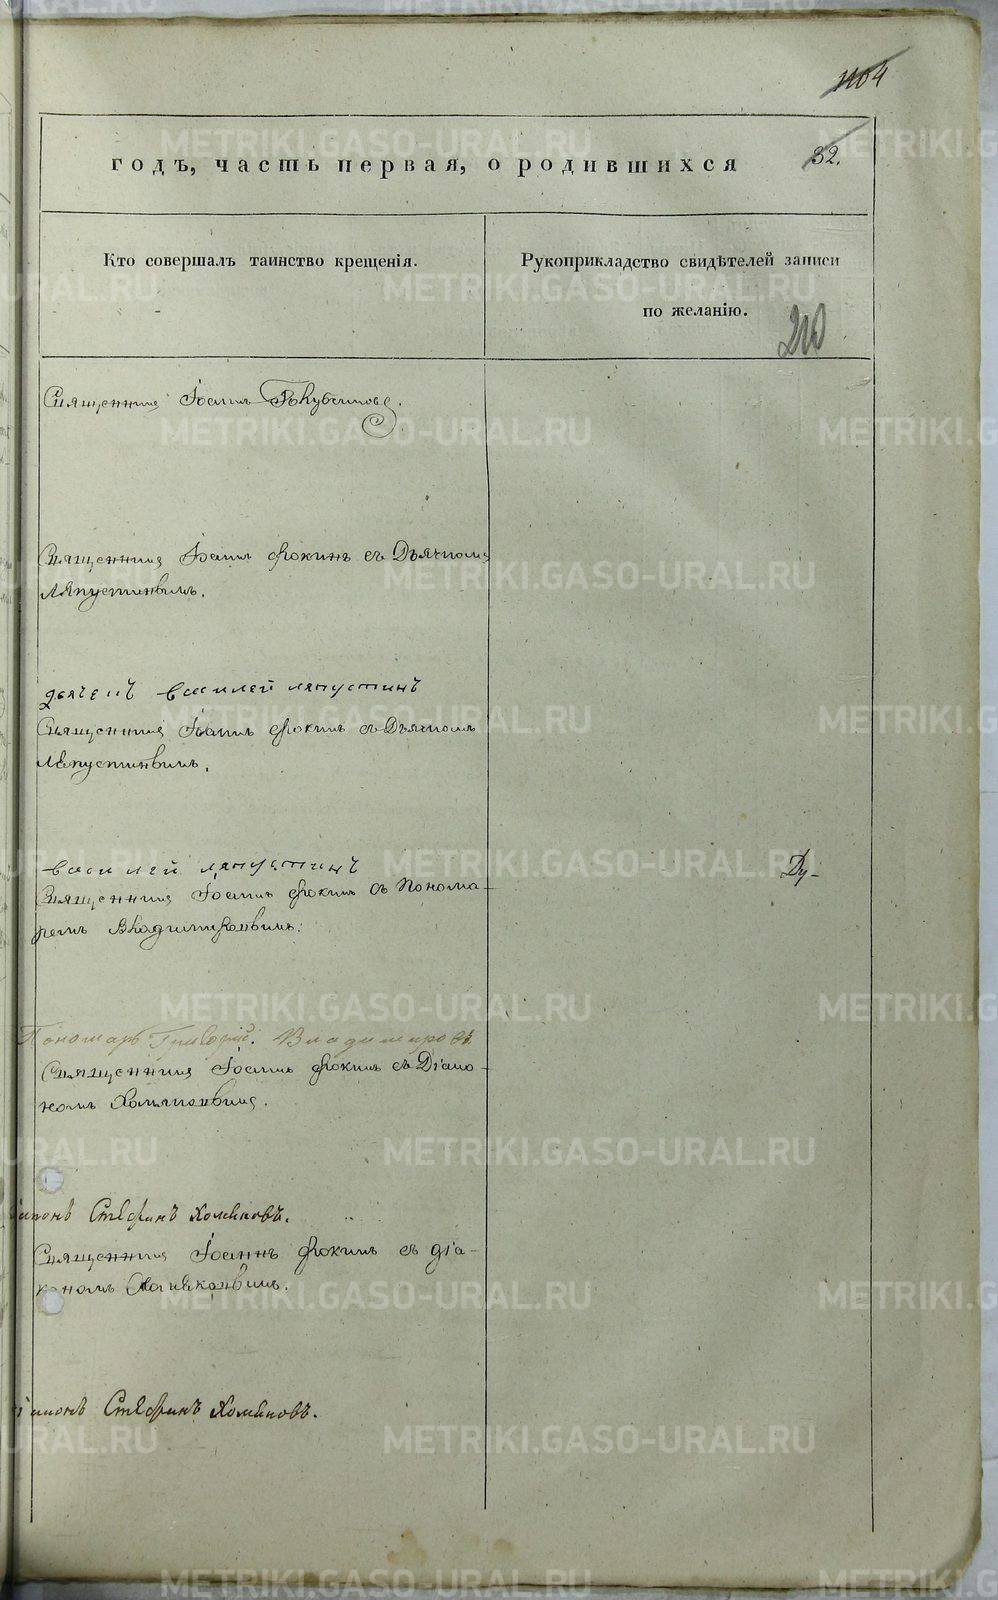 1104
годъ, часть первая, о родившихся
32.
Кто совершалъ таинство крещенія.
Рукоприкладство свидѣтелей записи
по желанію.
210
Священникъ Іоаннъ
Священникъ Іоаннъ Фокинъ съ Дьячкомъ
Ляпустинымъ.
дьячекъ василей ляпустинъ
Священникъ Іоаннъ Фокинъ съ Дьячкомъ
Ляпустинымъ.
василей ляпустинъ
Священникъ Іоаннъ Фокинъ съ Понома-
ремъ Владимировымъ.
Ду-
Пономарь Григорій Владимировъ
Священникъ Іоаннъ Фокинъ съ Діако-
номъ Хомяковымъ.
Стефанъ Хомяковъ.
Священникъ Іоаннъ Фокинъ съ діа-
кономъ Хомяковымъ.
Стефанъ Хомяковъ.
METRIKI.GASO-URAL.RU